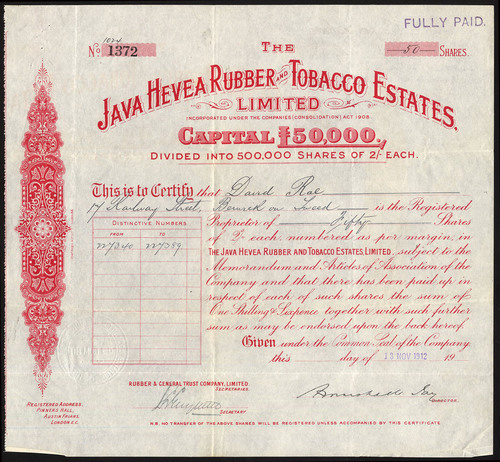 FULLY PAID.
1024
No 1372
THE
50 SHARES.
JAVA HEVEA RUBBER AND TOBACCO ESTATES,
LIMITED
INCORPORATED UNDER THE COMPANIES (CONSOLIDATION) ACT 1908
CAPITAL £50,000,
DIVIDED INTO 500,000 SHARES OF 2/- EACH.
This is to Certify that David Rae
17 Railway Street, Berwick on Tweed is the Registered
Proprietor of Fifty Shares
of 2/- each, numbered as per margin, in
THE JAVA HEVEA RUBBER AND TOBACCO ESTATES, LIMITED, subject to the
Memorandum and Articles of Association of the
Company and that there has been paid up in
respect of each of such shares the sum of
One Shilling & Sixpence together with such further
sum as may be endorsed upon the back hereof.
Given under the Common Seal of the Company
this day of 13 NOV. 1912 19
DISTINCTIVE NUMBERS
FROM TO
227340 227389
RUBBER & GENERAL TRUST COMPANY, LIMITED
SECRETARIES.
SECRETARY
DIRECTOR.
REGISTERED ADDRESS,
PINNERS HALL,
AUSTIN FRIARS,
LONDON E.C.
N.B. NO TRANSFER OF THE ABOVE SHARES WILL BE REGISTERED UNLESS ACCOMPANIED BY THIS CERTIFICATE.